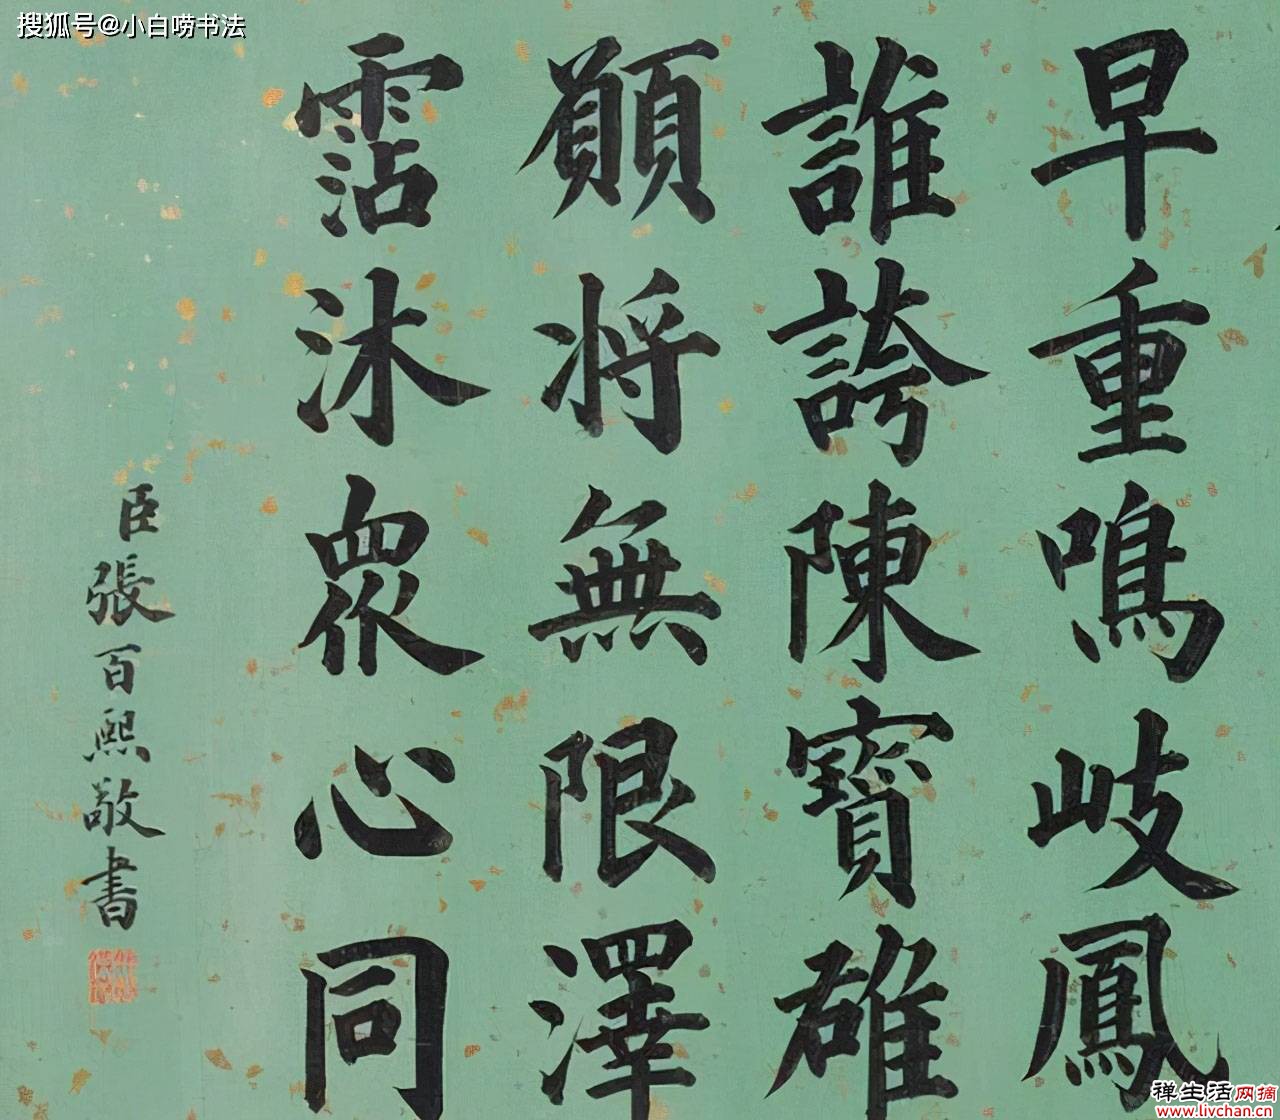 搜狐号@小白唠书法
早重鳴岐鳳
誰誇陳寶雄
願將無限澤
霑沐衆心同
臣張百熙敬書
禅生活网摘
www.livchan.cn